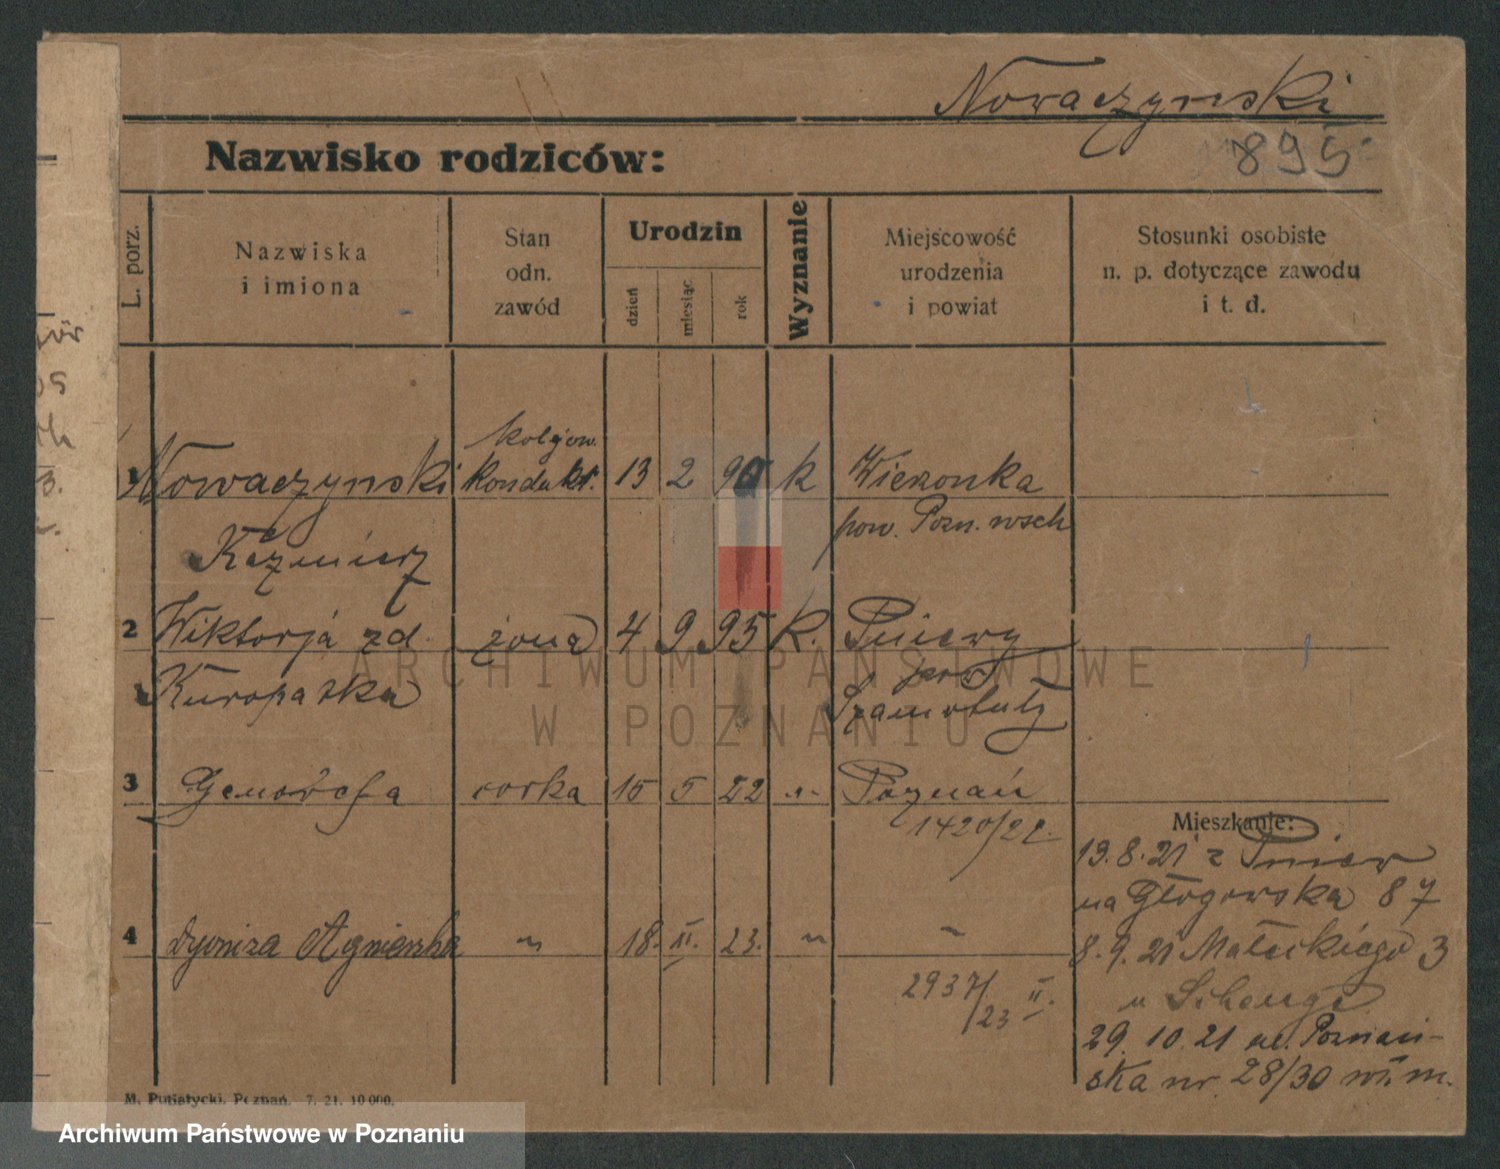 Nowaczynski
895
Nazwisko rodziców:
L. porz.
Nazwiska
i imiona
Stan
odn.
zawód
Urodzin
dzień
miesiąc
rok
Wyznanie
Miejscowość
urodzenia
i powiat
Stosunki osobiste
n. p. dotyczące zawodu
i t. d.
kolejow.
1 Nowaczynski kondukt. 13 2 90 k Wieronka
pow. Pozn. wsch
Kazmierz
2 Wiktorja zd. żona 4 9 95 k. Pniewy
Kuropaska pow
Szamotuły
3 Genowefa corka 15 5 22 -"- Poznań
1420/22
Mieszkanie:
19.8.21 z Pniew
na Głogowska 87
4 Dyoniza Agnieszka " 18. XI. 23. " "
8.9.21 Małeckiego 3
2937/23 II.
u
29.10.21 ul. Poznań-
ska nr. 28/30 m.
M. Putiatycki. Poznań. 7. 21. 10 000.
ARCHIWUM PAŃSTWOWE
W POZNANIU
Archiwum Państwowe w Poznaniu